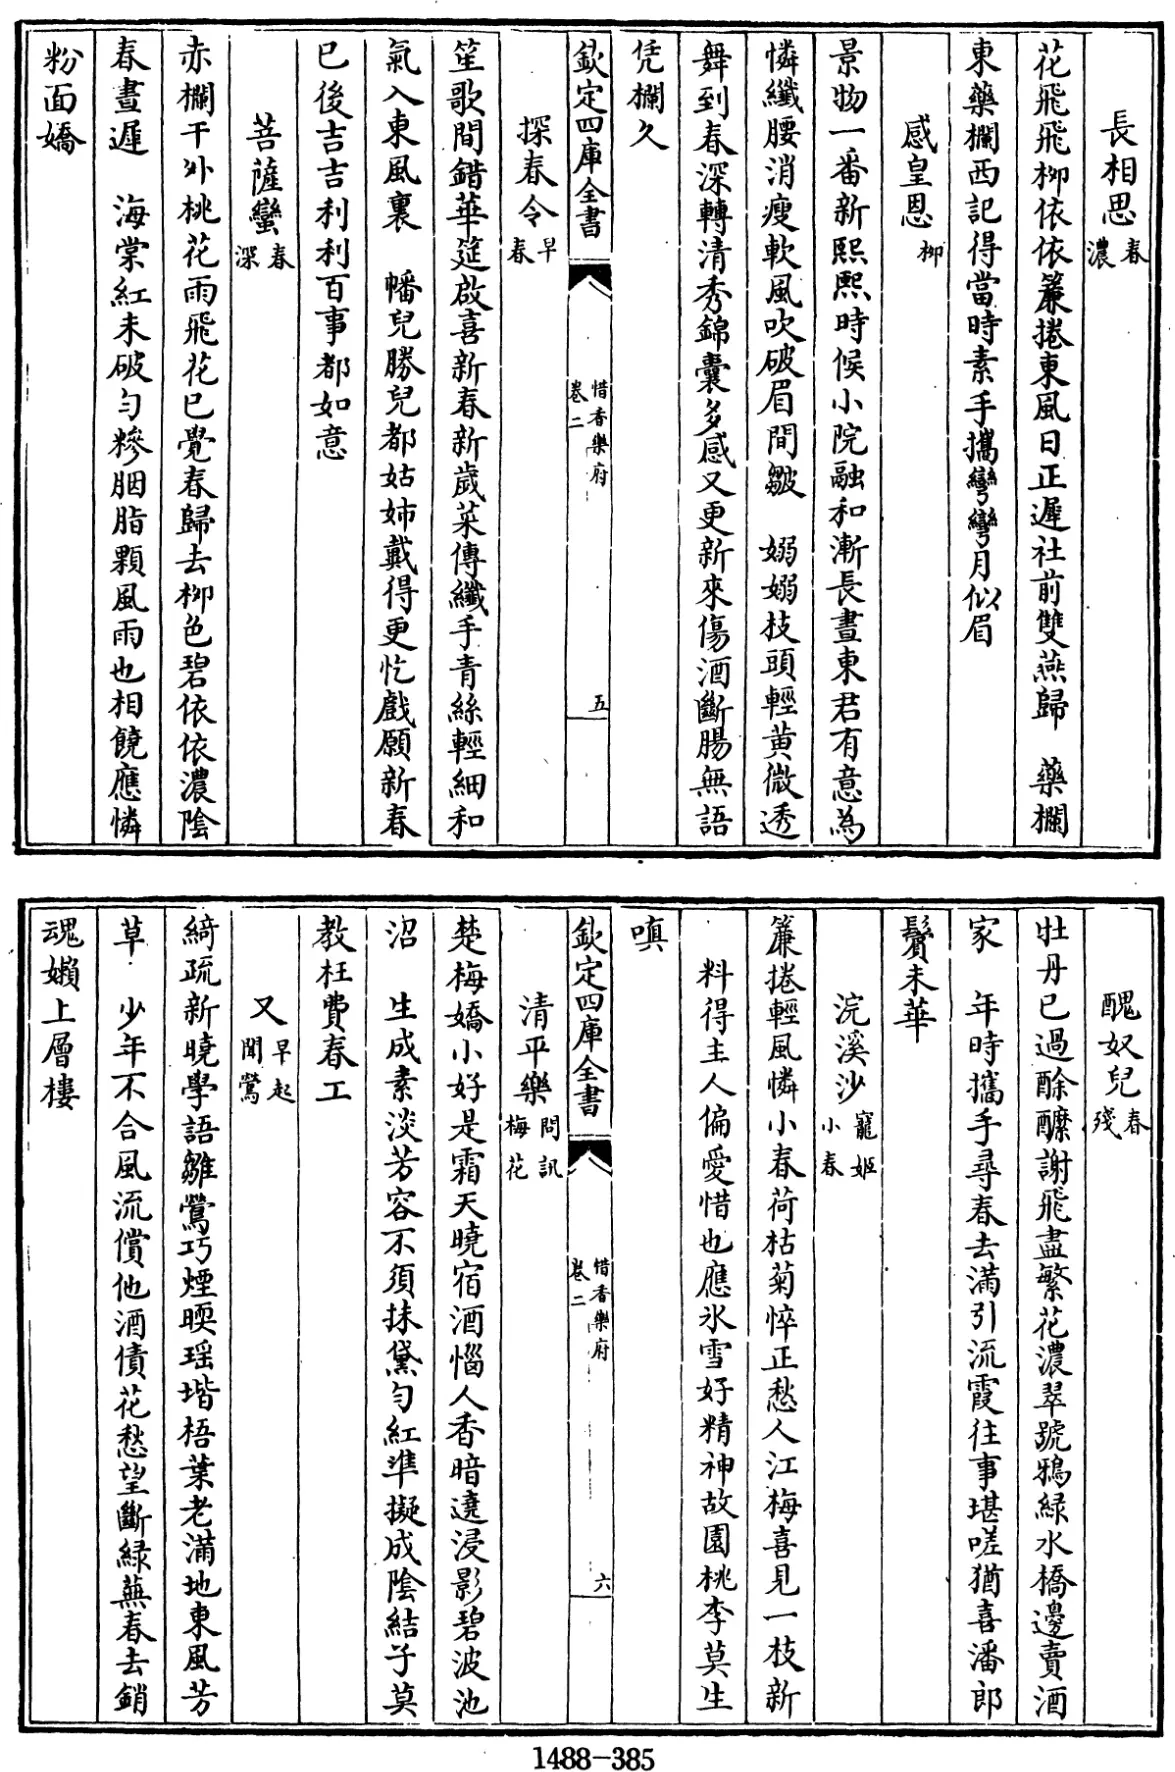 長相思春濃
花飛飛柳依依簾捲東風日正遲社前雙燕歸　藥欄
東藥欄西記得當時素手攜彎彎月似眉
感皇恩柳
景物一番新熙熙時候小院融和漸長晝東君有意為
憐纖腰消瘦軟風吹破眉間皺　嫋嫋枝頭輕黃微透
舞到春深轉清秀錦囊多感又更新來傷酒斷腸無語
凭欄久
欽定四庫全書
惜香樂府
卷二
五
探春令早春
笙歌間錯華筵啟喜新春新歲菜傳纖手青絲輕細和
氣入東風裏　幡兒勝兒都姑姊戴得更忔戲願新春
已後吉吉利利百事都如意
菩薩蠻春深
赤欄干外桃花雨飛花已覺春歸去柳色碧依依濃陰
春晝遲　海棠紅未破勻糝胭脂顆風雨也相饒應憐
粉面嬌
醜奴兒春殘
牡丹已過酴醿謝飛盡繁花濃翠號鴉緑水橋邊賣酒
家　年時攜手尋春去滿引流霞往事堪嗟猶喜潘郎
鬢未華
浣溪沙寵姬小春
簾捲輕風憐小春荷枯菊悴正愁人江梅喜見一枝新
料得主人偏愛惜也應氷雪好精神故園桃李莫生
嗔
欽定四庫全書
惜香樂府
卷二
六
清平樂問訊梅花
楚梅嬌小好是霜天曉宿酒惱人香暗遶浸影碧波池
沼　生成素淡芳容不須抹黛勻紅準擬成陰結子莫
教枉費春工
又早起聞鶯
綺疏新曉學語雛鶯巧煙暝瑶堦梧葉老滿地東風芳
草　少年不合風流償他酒債花愁望斷緑蕪春去銷
魂嬾上層樓
1488-385